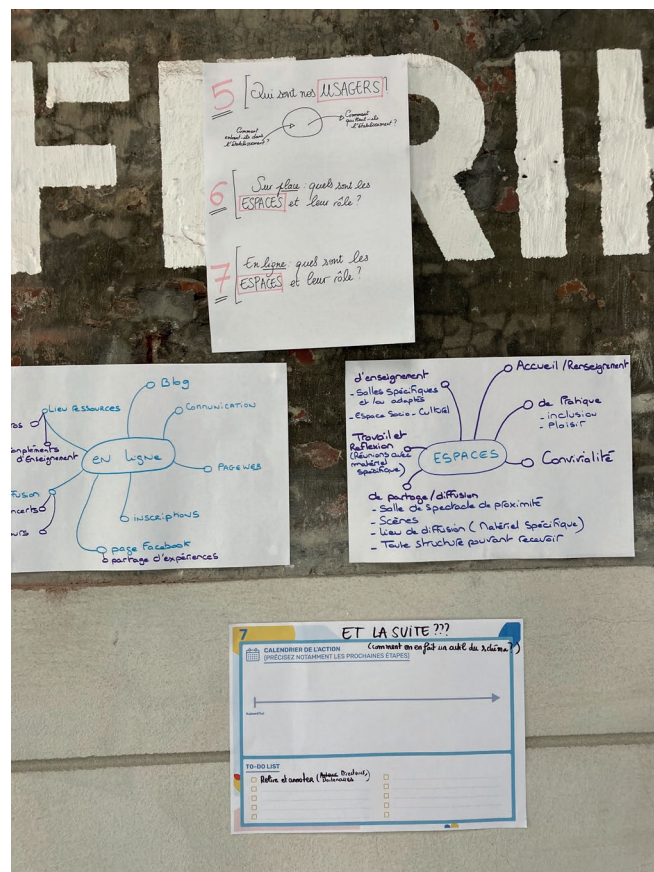 5 [Qui sont nos USAGERS]
Comment
entrent-ils dans
l'établissement ?
Comment
l'établissement ?
6 [Sur place : quels sont les
ESPACES et leur rôle ?
7 [En ligne : quels sont les
ESPACES et leur rôle ?
Blog
LIEU RESSOURCES
COMMUNICATION
d'Enseignement
EN LIGNE
PAGE WEB
INSCRIPTIONS
page Facebook
partage d'expériences
d'enseignement
- Salles Spécifiques
et/ou adaptés
- Espace Socio-Culturel
Accueil/Renseignement
de Pratique
- inclusion
- Plaisir
Travail et
Réflexion
(Réunions avec
matériel
spécifique)
ESPACES
Convivialité
de partage/diffusion
- Salle de Spectacle de proximité
- Scènes
- Lieu de diffusion (Matériel Spécifique)
- Toute structure pouvant recevoir
7
ET LA SUITE ???
(comment on en fait un outil du schéma ?)
CALENDRIER DE L'ACTION
(PRÉCISEZ NOTAMMENT LES PROCHAINES ÉTAPES)
Aujourd'hui
TO-DO LIST
Relire et annoter (
Partenaires